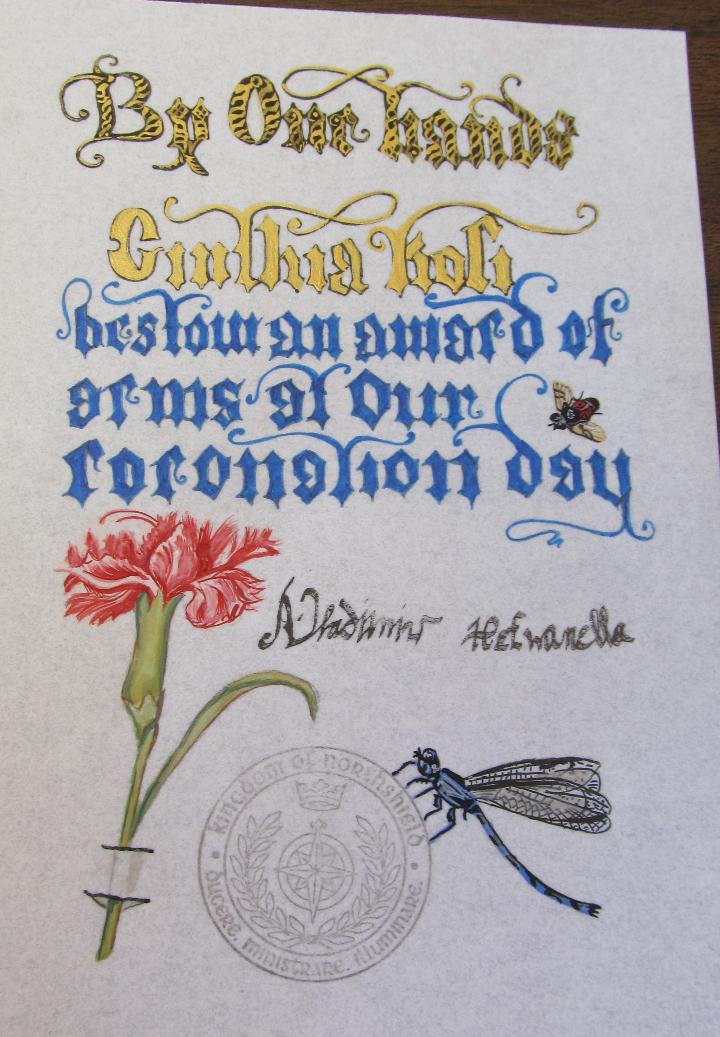 By Our hands
Cinthia Roli
bestow an award of
arms at Our
coronation day
Vladimir Petranella
KINGDOM OF NORTHSHIELD
DUCERE. MINISTRARE. ILLUMINARE.